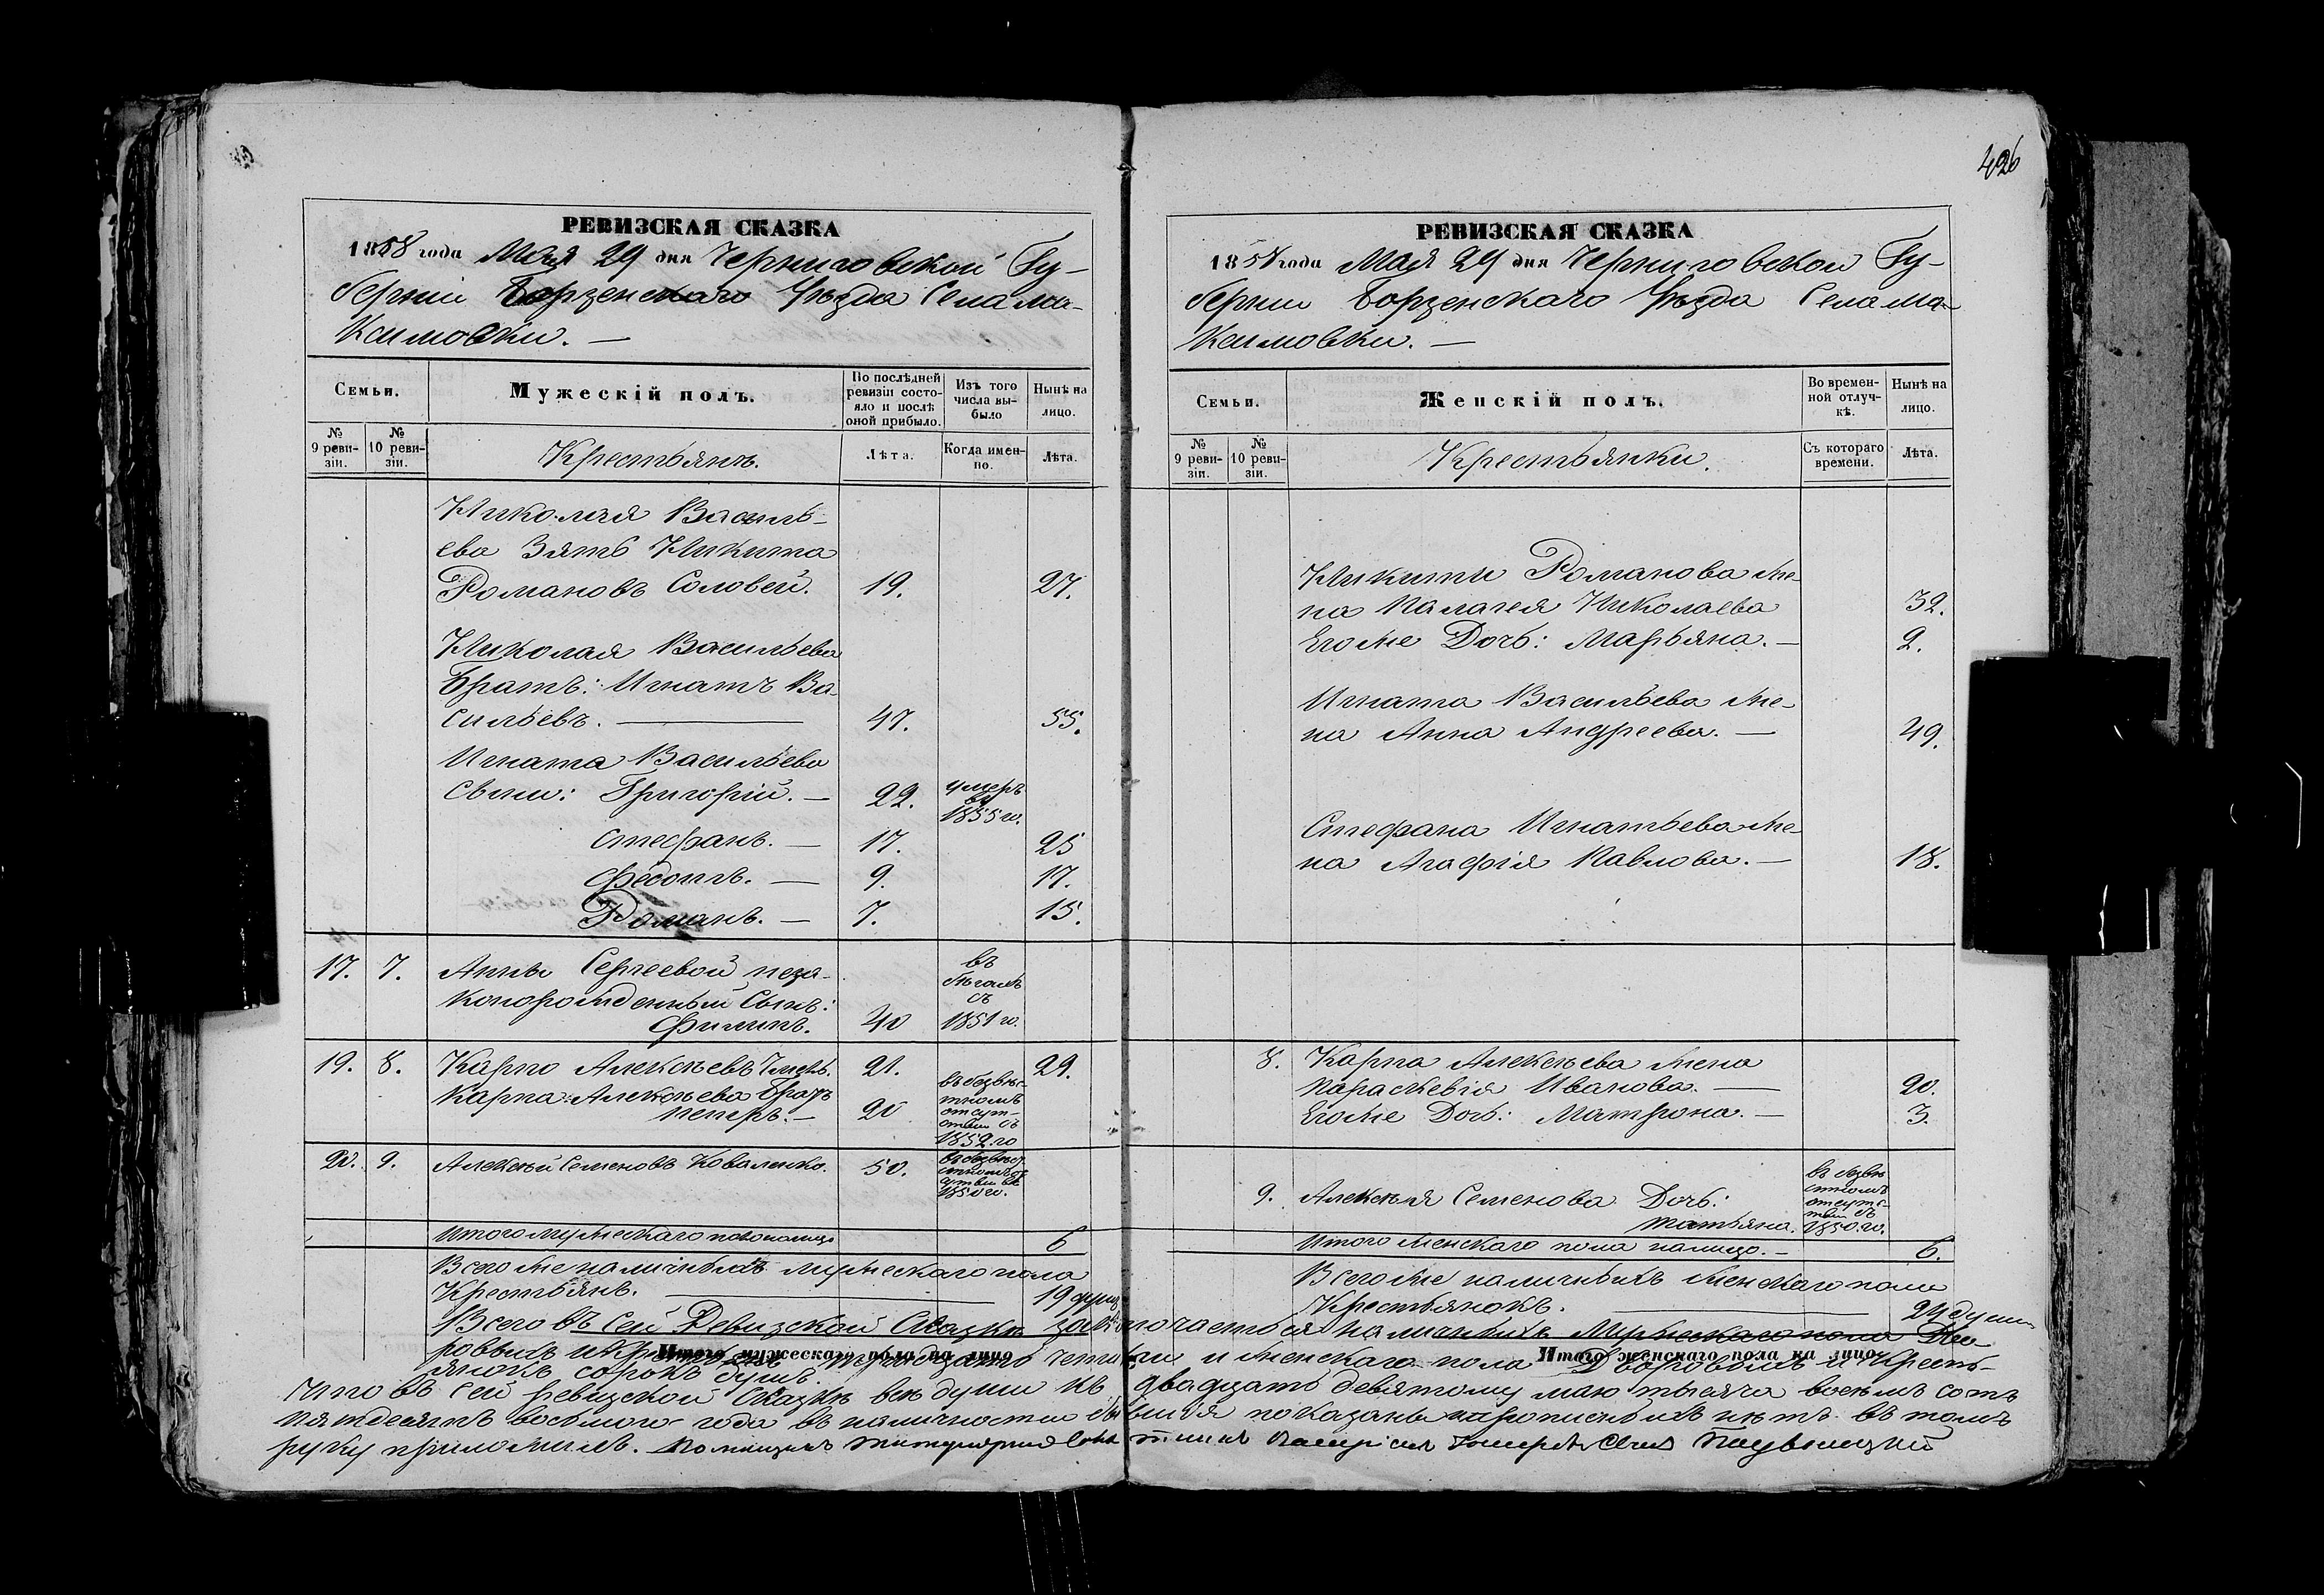 426
РЕВИЗСКАЯ СКАЗКА
1858 года Мая 29 дня Черниговской Гу-
берніи Борзенскаго Уѣзда Села Ма-
ксимовки. —
Семьи.
Мужескій полъ.
По послѣдней ревизіи состо-
яло и послѣ оной прибыло.
Изъ того числа вы-
было
Нынѣ на лицо.
№ 9 реви-
зіи.
№ 10 реви-
зіи.
Крестьянъ.
Лѣта.
Когда имен-
но.
Лѣта.
Николая Василь-
ева Зять Никита
Романовъ Соловей. 19. 27.
Николая Васильева
Братъ: Игнатъ Ва-
сильевъ. — 47. 55.
Игната Васильева
Сыны: Григорій. — 22. умеръ въ 1855 го.
Стефанъ. — 17. 25
Федотъ. — 9. 17.
Романъ. — 7. 15.
17. 7. Анны Сергеевой неза-
конорожденный Сынъ:
Филипъ. 40 въ бѣгахъ съ 1851 го.
19. 8. Карпо Алексѣевъ 21. 29.
Карпа Алексѣева Братъ
Петръ. — 20 въ безвѣс-
тномъ отсут-
ствіи съ 1852 го
20. 9. Алексѣй Семеновъ Коваленко. 50. въ безвѣст
1850 го.
Итого мужескаго пола налицо 6
Всего же наличныхъ мужескаго пола
Крестьянъ. — 19 душъ
РЕВИЗСКАЯ СКАЗКА
1858 года Мая 29 дня Черниговской Гу-
берніи Борзенскаго Уѣзда Села Ма-
ксимовки. —
Семьи.
Женскій полъ.
Во времен-
ной отлуч-
кѣ.
Нынѣ на лицо.
№ 9 реви-
зіи.
№ 10 реви-
зіи.
Крестьянки.
Съ котораго времени.
Лѣта.
Никиты Романова же-
на Палагея Николаева 32.
Его же Дочь: Марьяна. — 2.
Игната Васильева же-
на Анна Андреева. — 49.
Стефана Игнатьева же-
на Агафія Павлова. — 18.
8. Карпа Алексѣева жена
Параскевія Иванова. — 20.
Его же Дочь: Матрона. — 3.
9. Алексѣя Семенова Дочь:
Татьяна. въ безвѣ
стномъ отсутс-
твіи съ 1850 го.
Итого женскаго пола налицо. — 6.
Всего же наличныхъ женскаго пола
Крестьянокъ. — 24 души
Всего въ Сей Ревизской Сказкѣ заключается наличныхъ Мужескаго пола Дво-
ровыхъ и Крестьянъ тридцать четыре и женскаго пола Дворовыхъ и Кресть-
янокъ сорокъ душъ.
Итого мужескаго пола на лицо
Итого женскаго пола на лицо
Что въ сей ревизской сказкѣ всѣ души къ двадцать девятому маю тысяча восемь сотъ
пятдесятъ восьмого года въ наличности бывшія показаны и прописныхъ нѣтъ въ томъ
руку приложилъ. Помещикъ Титулярный Советникъ